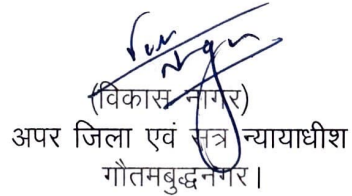 (विकास नागर)
अपर जिला एवं सत्र न्यायाधीश
गौतमबुद्धनगर।